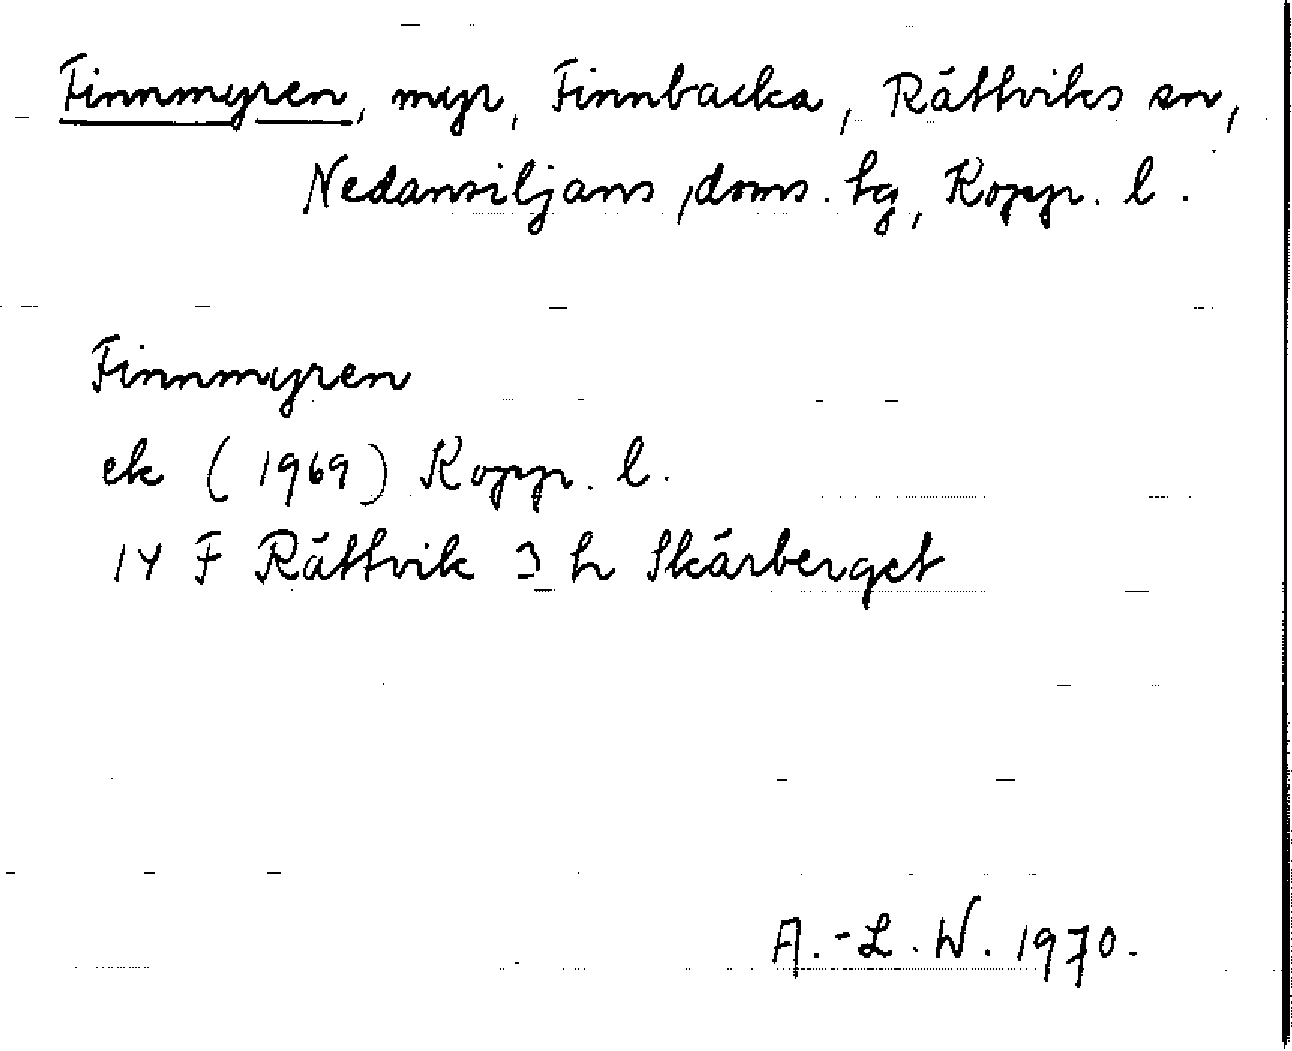 Finnmyren, myr, Finnbacka, Rättviks sn,
Nedansiljans doms. hg, Kopp. l.
Finnmyren
ek (1969) Kopp. l.
14 F Rättvik 3 h Skärberget
A.-L. W. 1970.